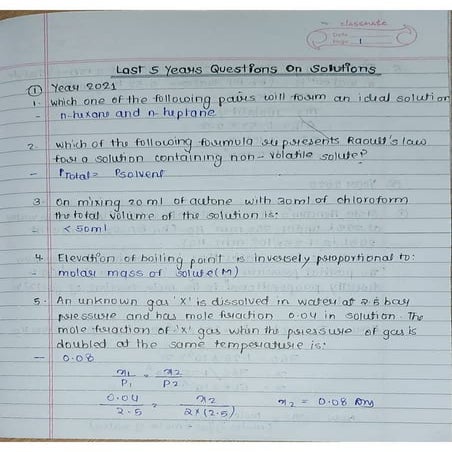 classmate
Date
Page 1
Last 5 Years Questions On Solutions
① Year 2021
1. Which one of the following pairs will form an idial solution
- n-huxane and n-huptane
2. Which of the following formula represents Raoult's law
for a solution containing non-volatile solute?
- Ptotal = Psolvent
3. On mixing 20 ml of acetone with 30ml of chloroform
the total volume of the solution is:
- < 50ml
4. Elevation of boiling point is inversely proportional to:
- molar mass of solute (M)
5. An unknown gas 'X' is dissolved in water at 2.5 bar
pressure and has mole fraction 0.04 in solution. The
mole fraction of 'X' gas when the pressure of gas is
doubled at the same temperature is:
- 0.08
x1/P1 = x2/P2
0.04/2.5 = x2/2×(2.5) x2 = 0.08 Ans